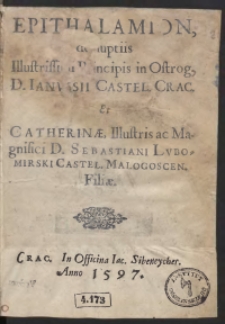 EPITHALAMION,
nuptiis
Illustrissimi Principis in Ostrog,
D. IANVSII CASTEL. CRAC.
Et
CATHERINÆ. Illustris ac Ma-
gnifici D. SEBASTIANI LVBO-
MIRSKI CASTEL. MALOGOSCEN.
Filiæ.
CRAC. In Officina Iac. Sibeneycher.
Anno 1597.
4.173